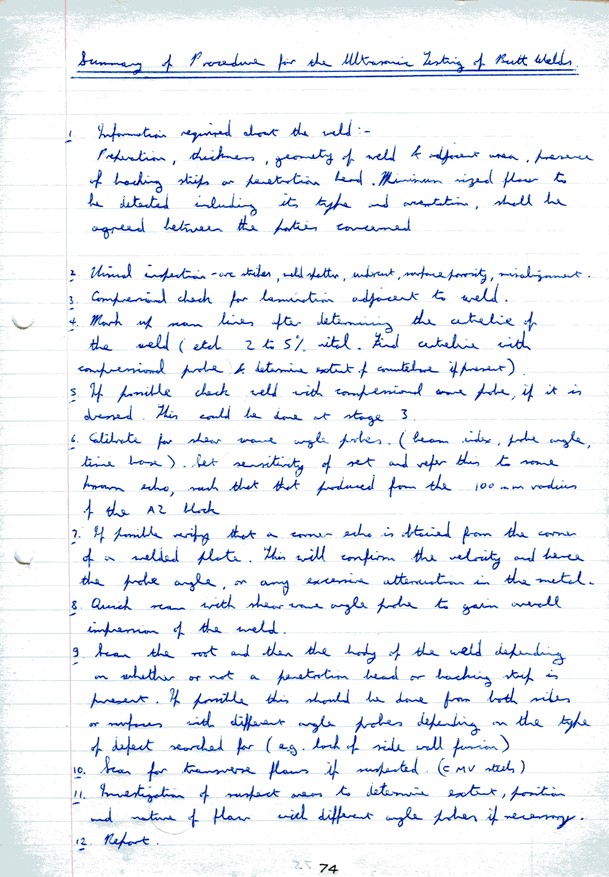 Summary of Procedure for the Ultrasonic Testing of Butt Welds.
1 Information required about the weld:-
Preperation, thickness, geometry of weld & adjacent area, presence
of backing strips or penetration bead. Minimum sized flaw to
be detected including its type and orentation, shall be
agreed between the parties concerned
2 Visual inspection - arc strikes, weld spatter, undercut, surface porosity, misalignment.
3 Compressional check for lamination adjacent to weld.
4. Mark up scan lines after determining the centreline of
the weld (etch 2 to 5% nital. Find centreline with
compressional probe & determine extent of counterbore if present).
5 If possible check weld with compressional wave probe, if it is
dressed. This could be done at stage 3
6. Calibrate for shear wave angle probes. (beam index, probe angle,
time base). Set sensitivity of set and refer this to some
known echo, such that that produced from the 100 mm radius
of the A2 block
7. If possible verify that a corner echo is obtained from the corner
of a welded plate. This will confirm the velocity and hence
the probe angle, or any excessive attenuation in the metal.
8. Quick scan with shear wave angle probe to gain overall
impression of the weld.
9. Scan the root and then the body of the weld depending
on whether or not a penetration bead or backing strip is
present. If possible this should be done from both sides
or surfaces with different angle probes depending on the type
of defect searched for (e.g. lack of side wall fusion)
10. Scan for transverse flaws if suspected. (CMV steels)
11. Investigation of suspect areas to determine extent, position
and nature of flaw with different angle probes if necessary.
12. Report.
74